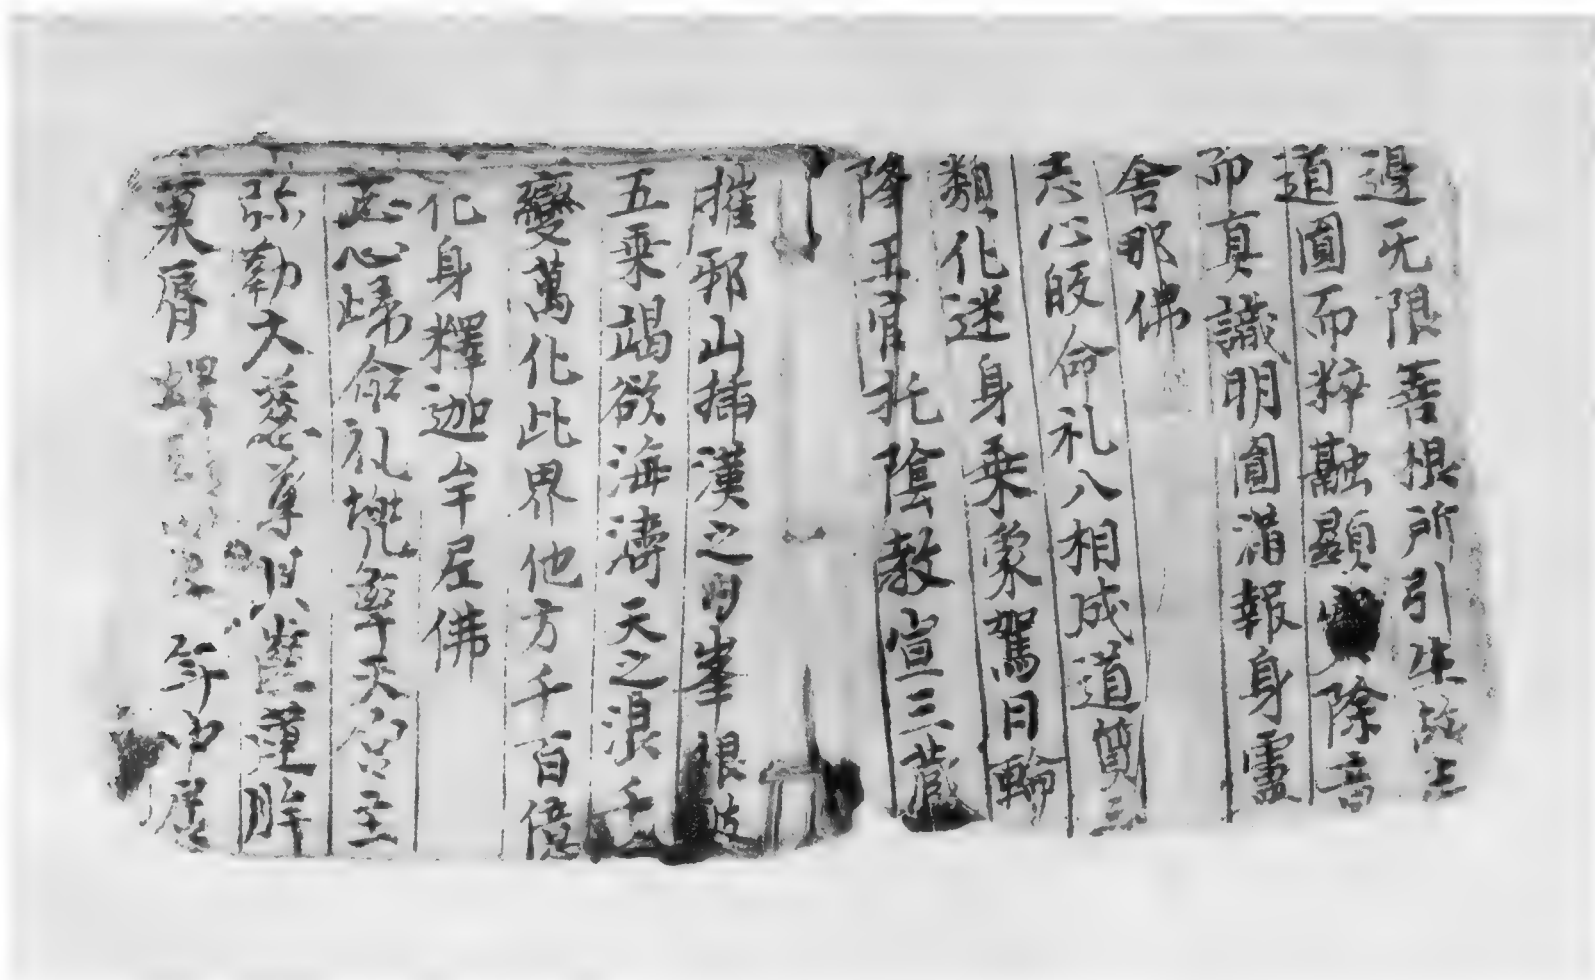 邊无限善根所引生
道圓而粹融顯除音
即真識明圓滿報身靈
舍那佛
志心皈命礼八相成道
類化迷身乗象駕日輪
降王宮托陰教宣三藏
摧邪山揷漢之峯
五乗竭欲海濤天之浪千
變萬化此界他方千百億
化身釋迦牟尼佛
志心歸命礼兠率天宮主
弥勒大慈尊蓮眸
菓脣年